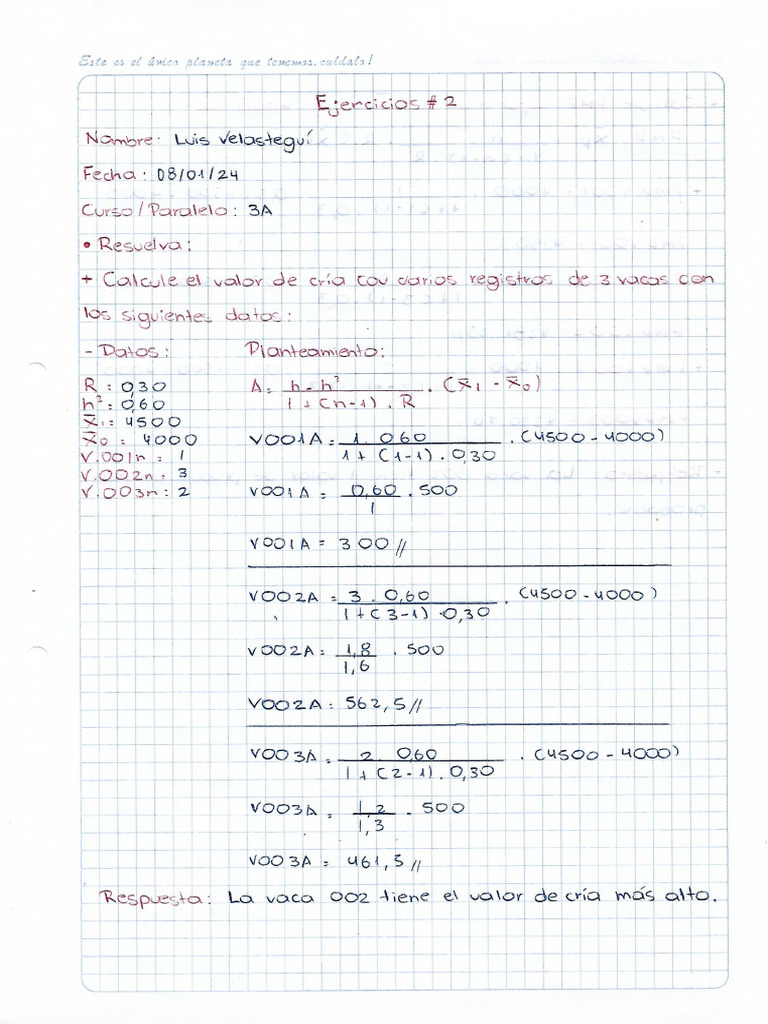 Este es el único planeta que tenemos, cuídalo!
Ejercicios # 2
Nombre: Luis Velasteguí
Fecha: 08/01/24
Curso/Paralelo: 3A
• Resuelva:
+ Calcule el valor de cría cov varios registros de 3 vacas con
los siguientes datos:
- Datos: Planteamiento:
R : 0,30
h²: 0,60
X̄₁: 4500
X̄₀ : 4000
V.001n : 1
V.002n : 3
V.003n : 2
A: n . h² / 1 + (n-1) . R . (X̄₁ - X̄₀)
V001A = 1 . 0,60 / 1 + (1-1) . 0,30 . (4500 - 4000)
V001A = 0,60 / 1 . 500
V001A = 300 //
V002A = 3 . 0,60 / 1 + (3-1) . 0,30 . (4500 - 4000)
V002A: 1,8 / 1,6 . 500
V002A : 562,5 //
V003A = 2 . 0,60 / 1 + (2-1) . 0,30 . (4500 - 4000)
V003A = 1,2 / 1,3 . 500
V003A = 461,5 //
Respuesta: La vaca 002 tiene el valor de cría más alto.